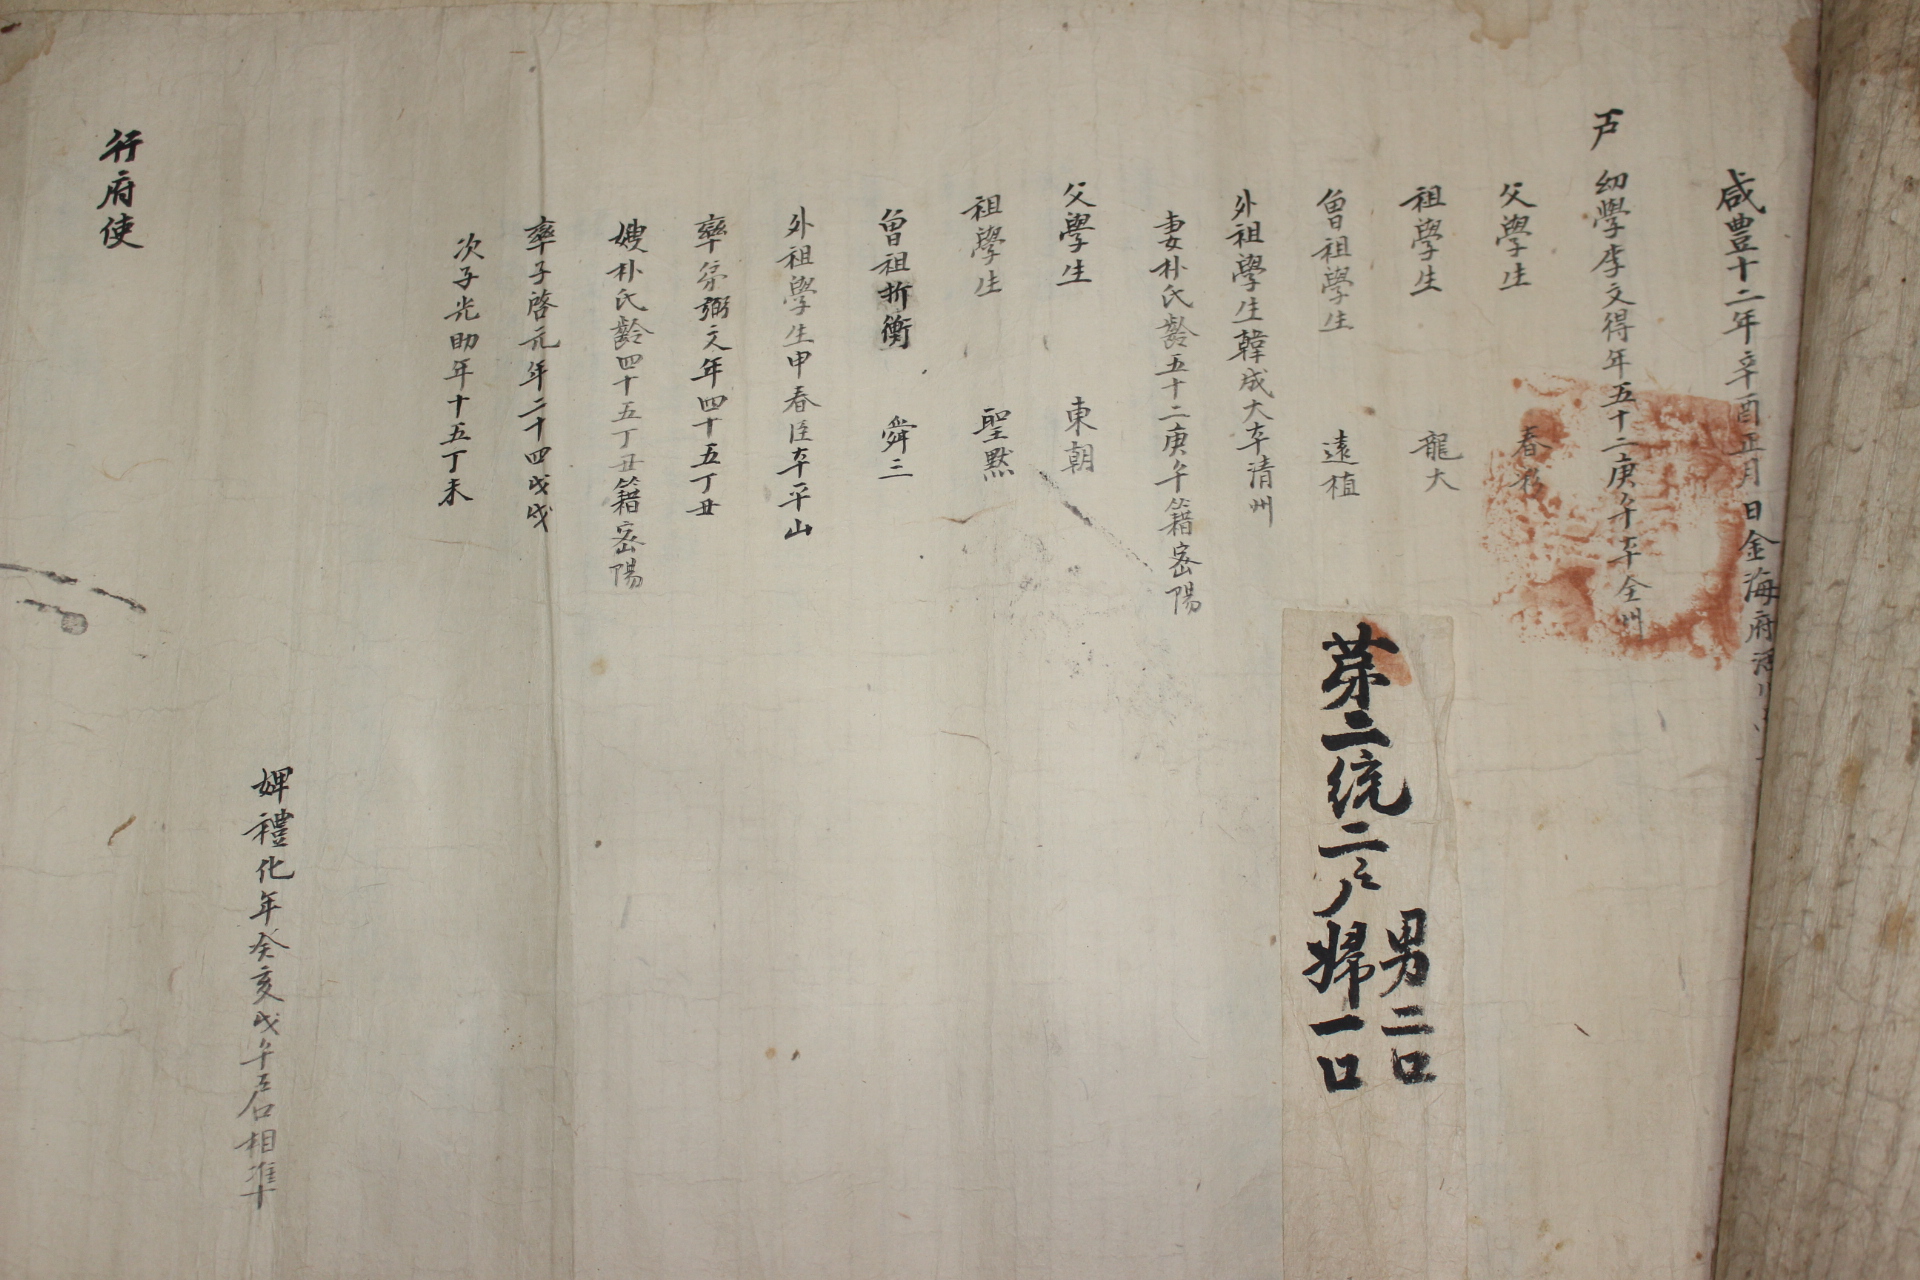 咸豊十二年辛酉正月日金海府
戶 幼學李文得年五十二庚午本全州
父學生 春
祖學生 龍大
曾祖學生 遠植
外祖學生韓成大本清州
妻朴氏齡五十二庚午籍密陽
父學生 東朝
祖學生 聖默
曾祖折衝 舜三
外祖學生申春臣本平山
率弟弼文年四十五丁丑
嫂朴氏齡四十五丁丑籍密陽
率子啓元年二十四戊戌
次子光助年十五丁未
婢禮化年癸亥戊午戶口相準
行府使
第二統二戶
男二口
婦一口